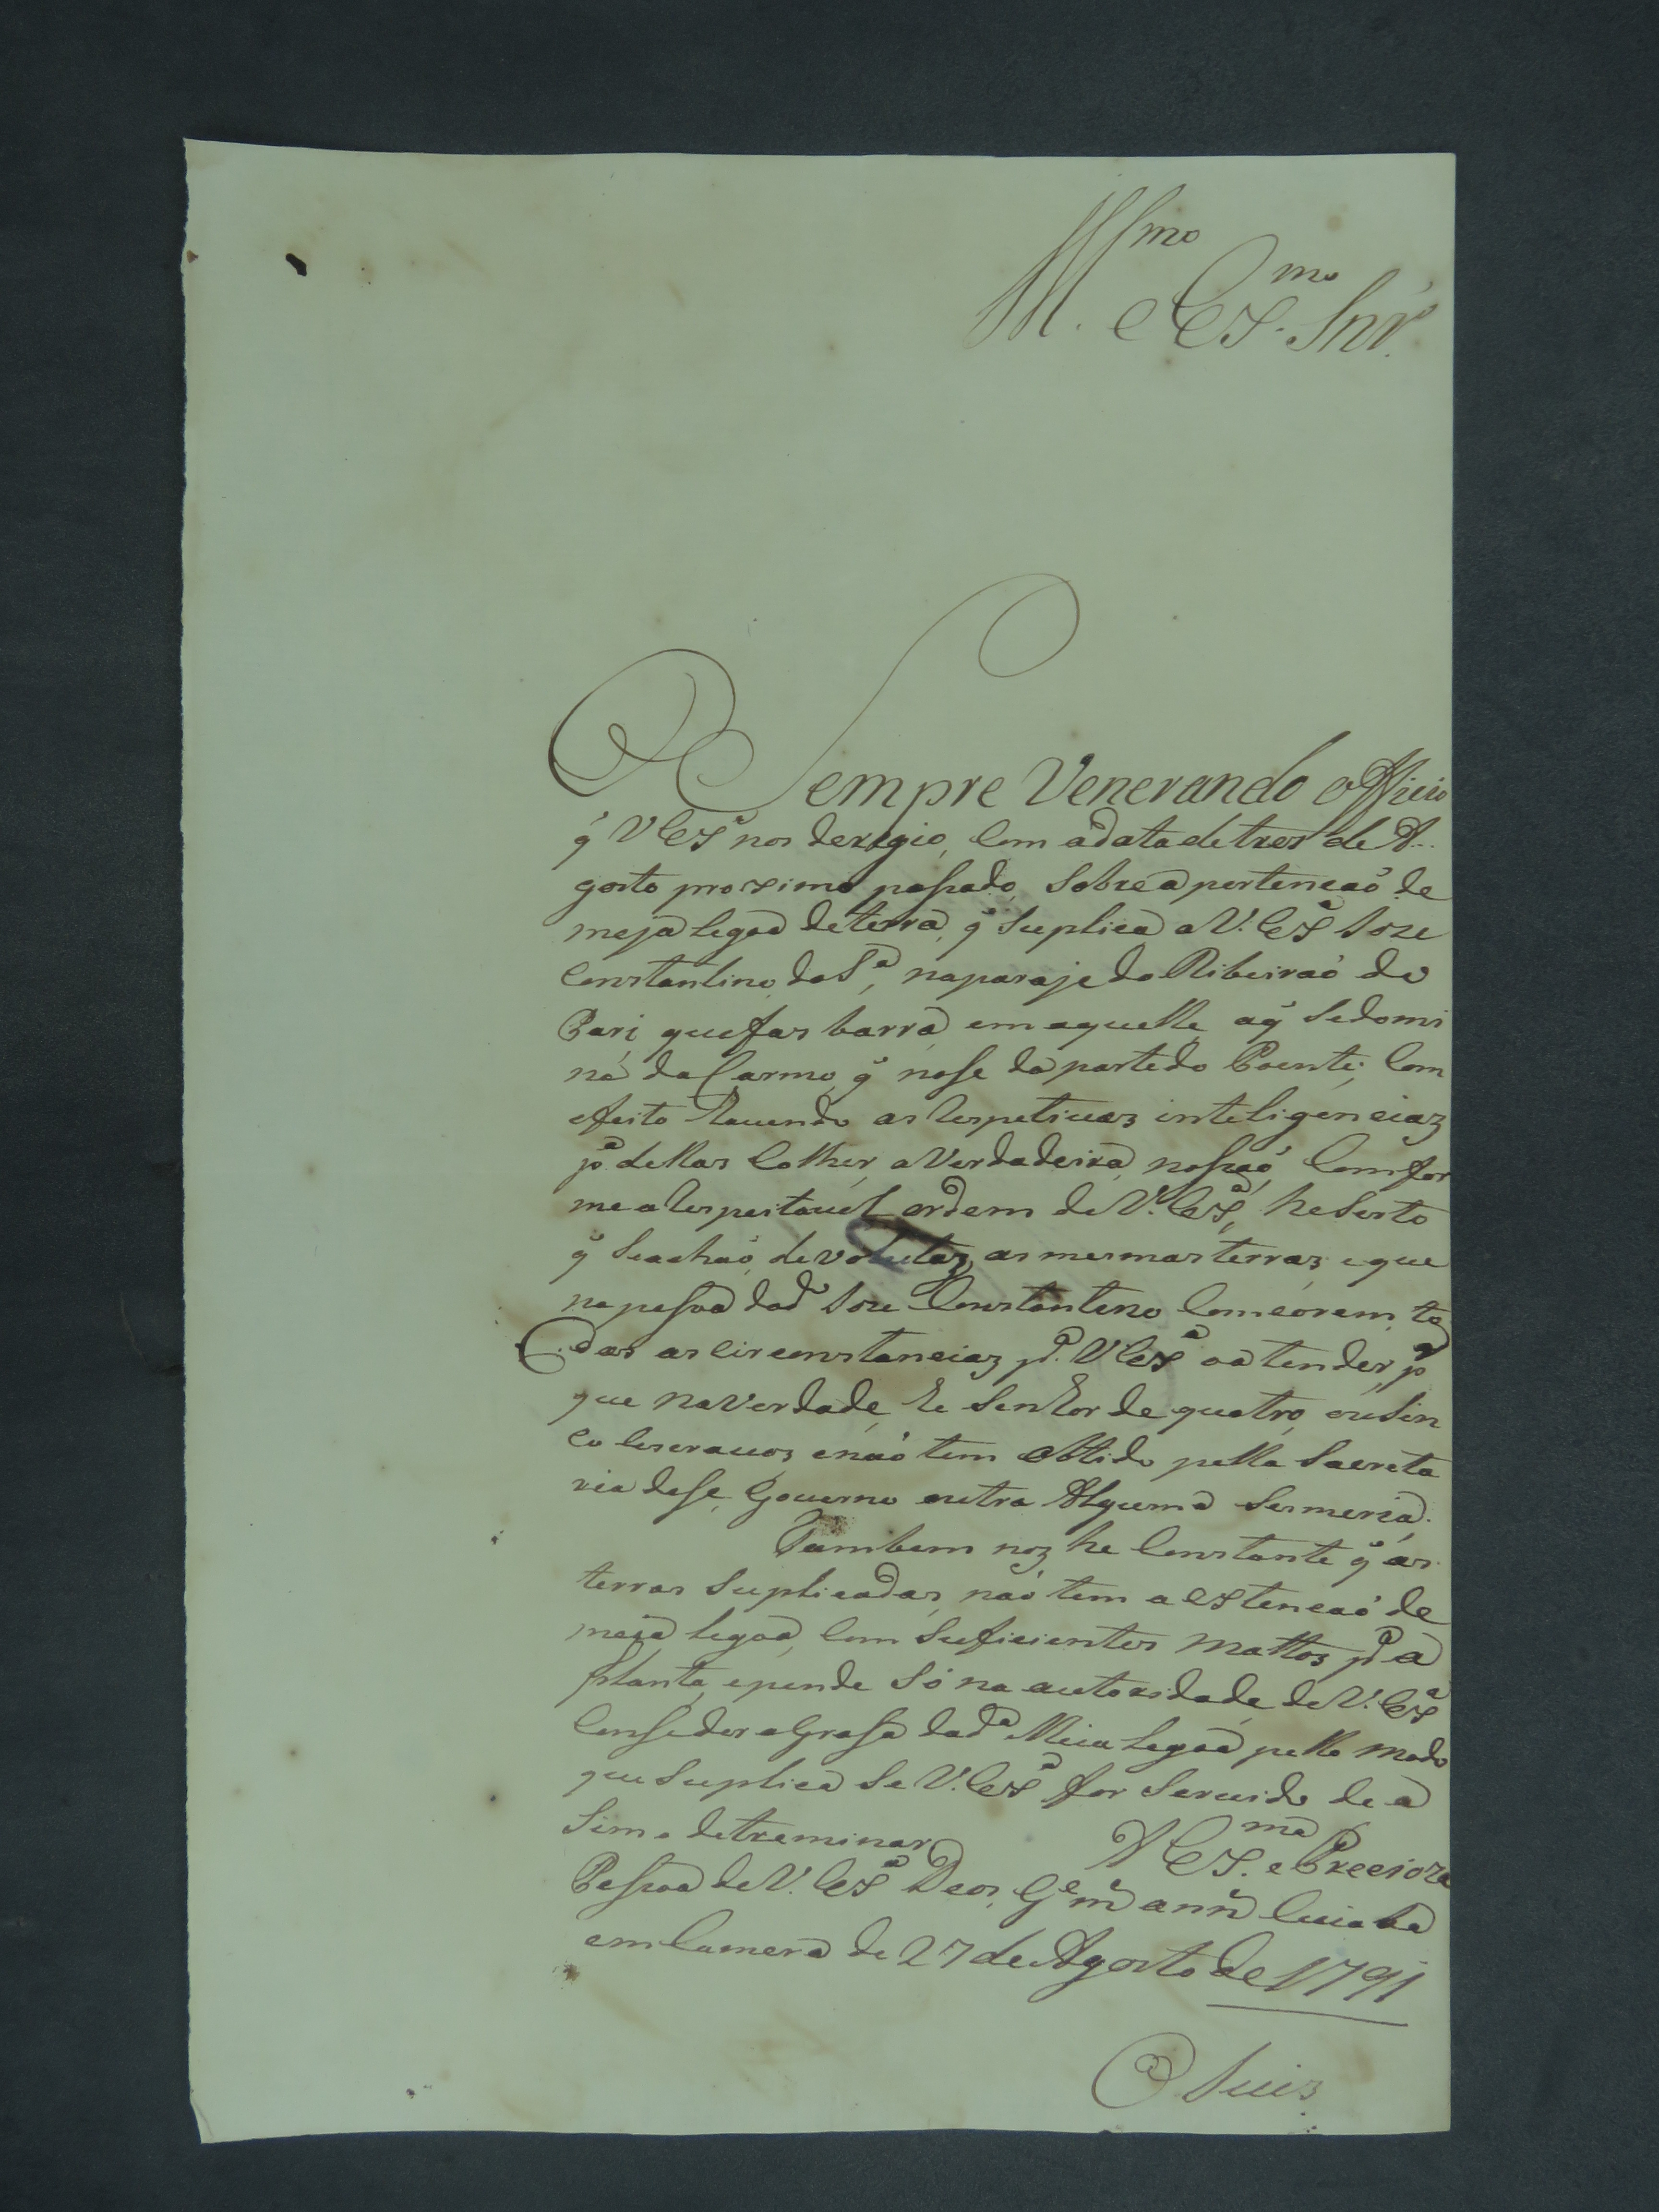 Illmo e Exmo Snr.
O Sempre Venerando officio
q̃ V Exª nos deregio, com adata detres de A-
gosto proximo passado, sobre a pertencaõ de
meja legoa deterra, q̃ suplica a V. Exª Joze
Constantino da Sª, naparaje do Ribeiraõ do
Pari que fas barra em aquelle aq̃ sedomi
na do Carmo, q̃ nase da parte do Poente; Com
efeito havendo as Respetivas inteligenciaz
pª dellas Colher averdadeira nossaõ, Comfor
me a Respeitavel ordem de V. Exª, he serto
q̃ seachaõ devolutaz as mesmas terraz e que
napessoa dodº Joze Constantino Comcorem to
das as circonstanciaz pª V Exª o atender, p
que na verdade he senhor de quatro, ousin
co escravoz, enaõ tem obtido pella Sacreta
ria dese Governo outra Alguma Sesmeria.
Tambem noz he Constante q̃ as
terras suplicadas, naõ tem a extencaõ de
meia legoa, Com suficientes mattoz pª a
planta, epende só na autoridade de V. Exª
Conseder a Grasa dadª Meia legoa pello modo
que suplica se V. Exª for servido de a
sim o detreminar A Exma e Precioza
Pessoa de V. Exª Deos Gᵉ mˢ annˢ Cuiaba
em Camera de 27 de Agosto de 1791
O Juiz